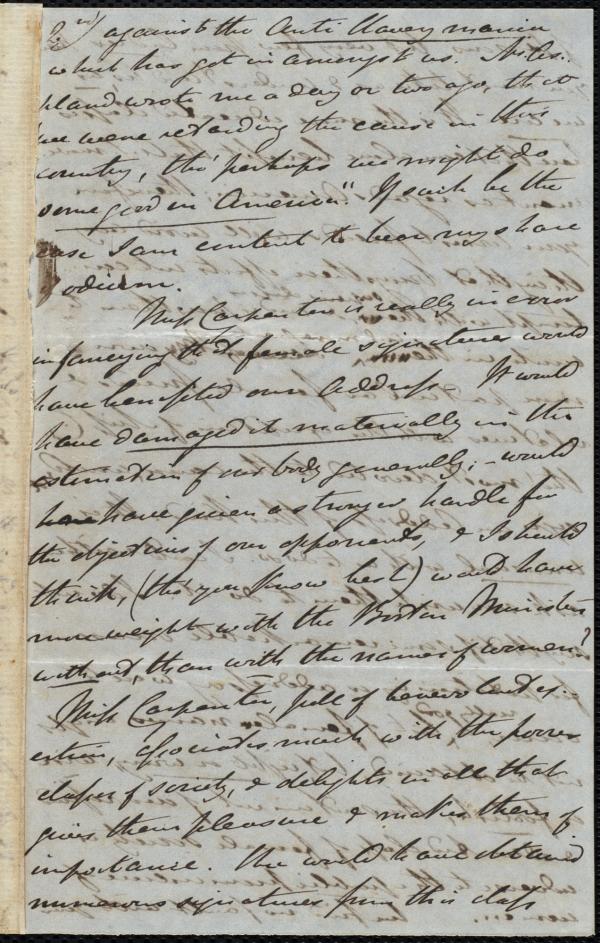 2nd) against the Anti Slavery mania
which has got in amongst us.
wrote me a day or two ago, that
we were retarding the cause in this
country, tho' perhaps we might do
some good in America". If such be the
case I am content to bear my share
odium.
Miss Carpenter is really in error
in fancying that female signatures would
have benefited our Address. It would
have damaged it materially in the
estimation of our body generally; - would
have given a stronger handle for
the objections of our opponents, & I should
think, (tho' you know best) would have
more weight with the Boston Ministers
without, than with the names of women.
Miss Carpenter, full of benevolent ex-
ertion, associates much with the poorer
classes of society, & delights in all that
gives them pleasure & makes them of
importance. She would have obtained
numerous signatures from this class